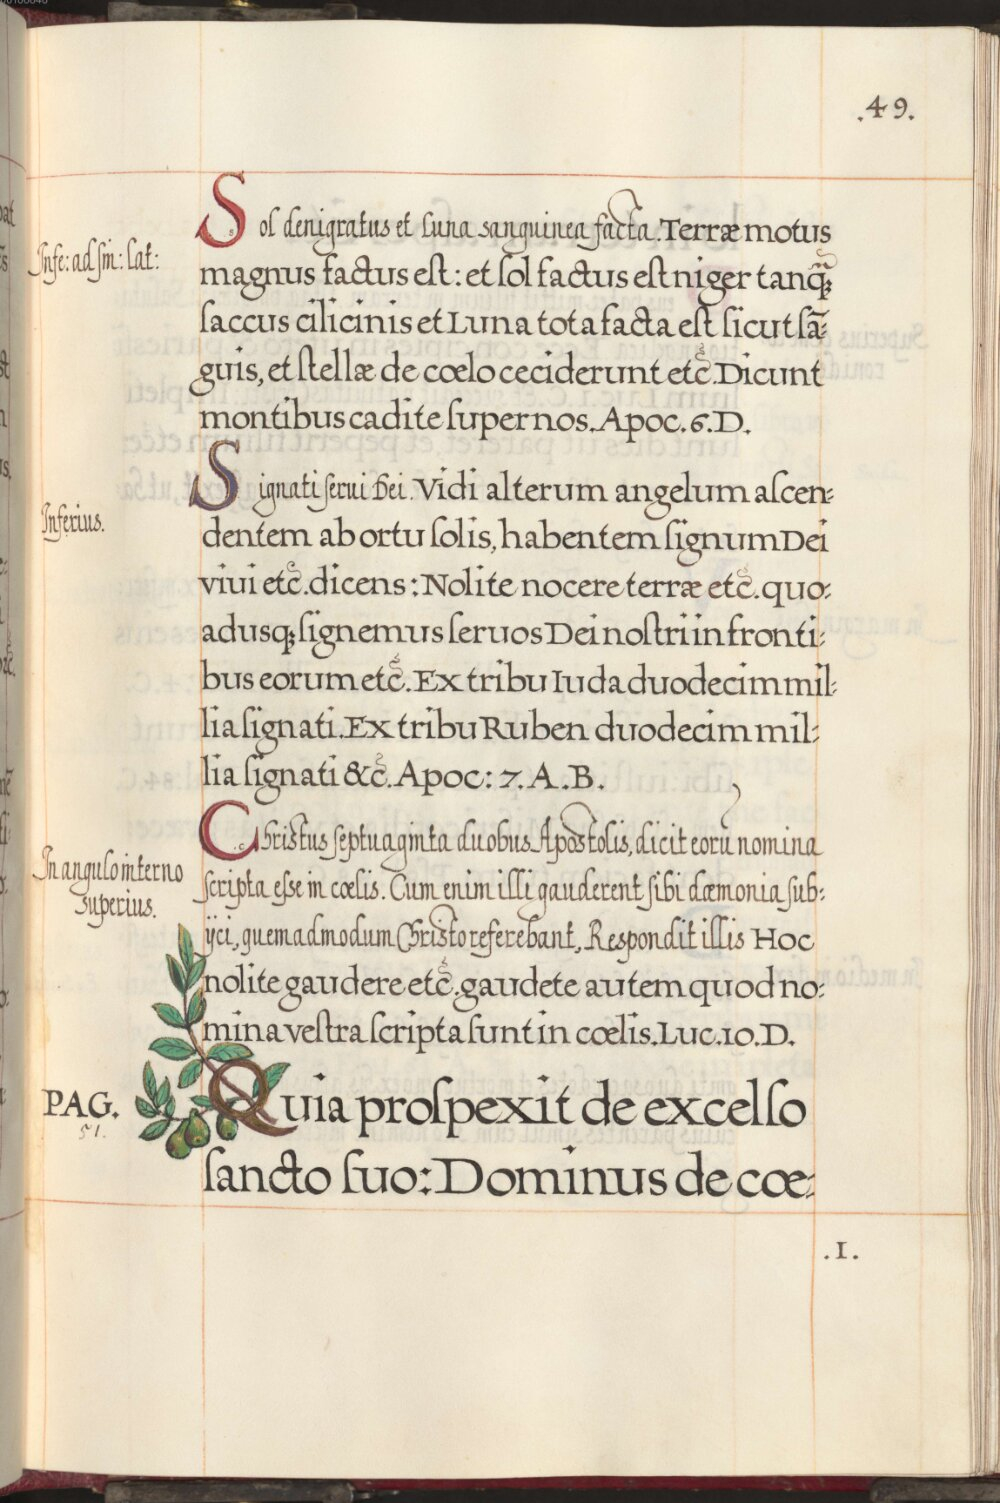 .49.
Sol denigratus et Luna sanguinea facta. Terræ motus
Infe: ad sin: lat:
magnus factus est: et sol factus est niger tanq̃;
saccus cilicinis et Luna tota facta est sicut sã-
guis, et stellæ de cœlo ceciderunt etc̃. Dicunt
montibus cadite super nos. Apoc. 6. D.
Signati serui Dei. Vidi alterum angelum ascen-
Inferius.
dentem ab ortu solis, habentem signum Dei
viui etc̃. dicens: Nolite nocere terræ etc̃. quo-
adusq; signemus seruos Dei nostri in fronti-
bus eorum etc̃. Ex tribu Iuda duodecim mil-
lia signati. Ex tribu Ruben duodecim mil-
lia signati &c̃. Apoc: 7. A. B.
Christus septuaginta duobus Apostolis, dicit eorũ nomina
In angulo interno
scripta esse in cœlis. Cum enim illi gauderent sibi dæmonia sub-
superius.
ijci, quemadmodum Christo referebant, Respondit illis Hoc
nolite gaudere etc̃. gaudete autem quod no-
mina vestra scripta sunt in cœlis. Luc. 10. D.
PAG.
51.
Quia prospexit de excelso
sancto suo: Dominus de cœ-
.1.